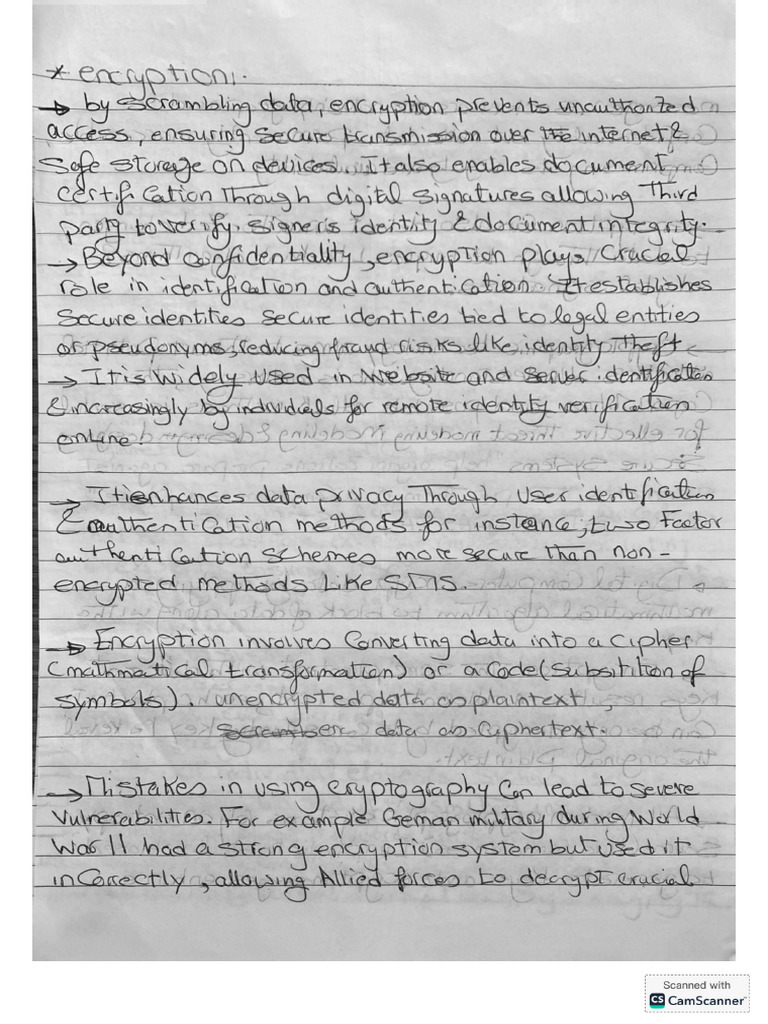 * encryption:
→ by scrambling data, encryption prevents unauthorized
access, ensuring secure transmission over the internet &
safe storage on devices. It also enables document
certification through digital signatures allowing Third
party to verify. signer's identity & document integrity.
→ Beyond confidentiality, encryption plays crucial
role in identification and authentication. It establishes
secure identities secure identities tied to legal entities
or pseudonyms, reducing fraud risks like identity theft
→ It is widely used in website and server identification
& increasingly by individuals for remote identity verification
online!
→ It enhances data privacy through user identification
& authentication methods for instance, two Factor
authentication schemes more secure than non-
encrypted methods Like SMS.
→ Encryption involves Converting data into a cipher
(mathmatical transformation) or a code (subsitition of
symbols). unencrypted data as plaintext,
enc data as ciphertext.
→ Mistakes in using cryptography can lead to severe
vulnerabilities. For example German military during World
War II had a strong encryption system but used it
incorrectly, allowing Allied forces to decrypt crucial
Scanned with
CS CamScanner